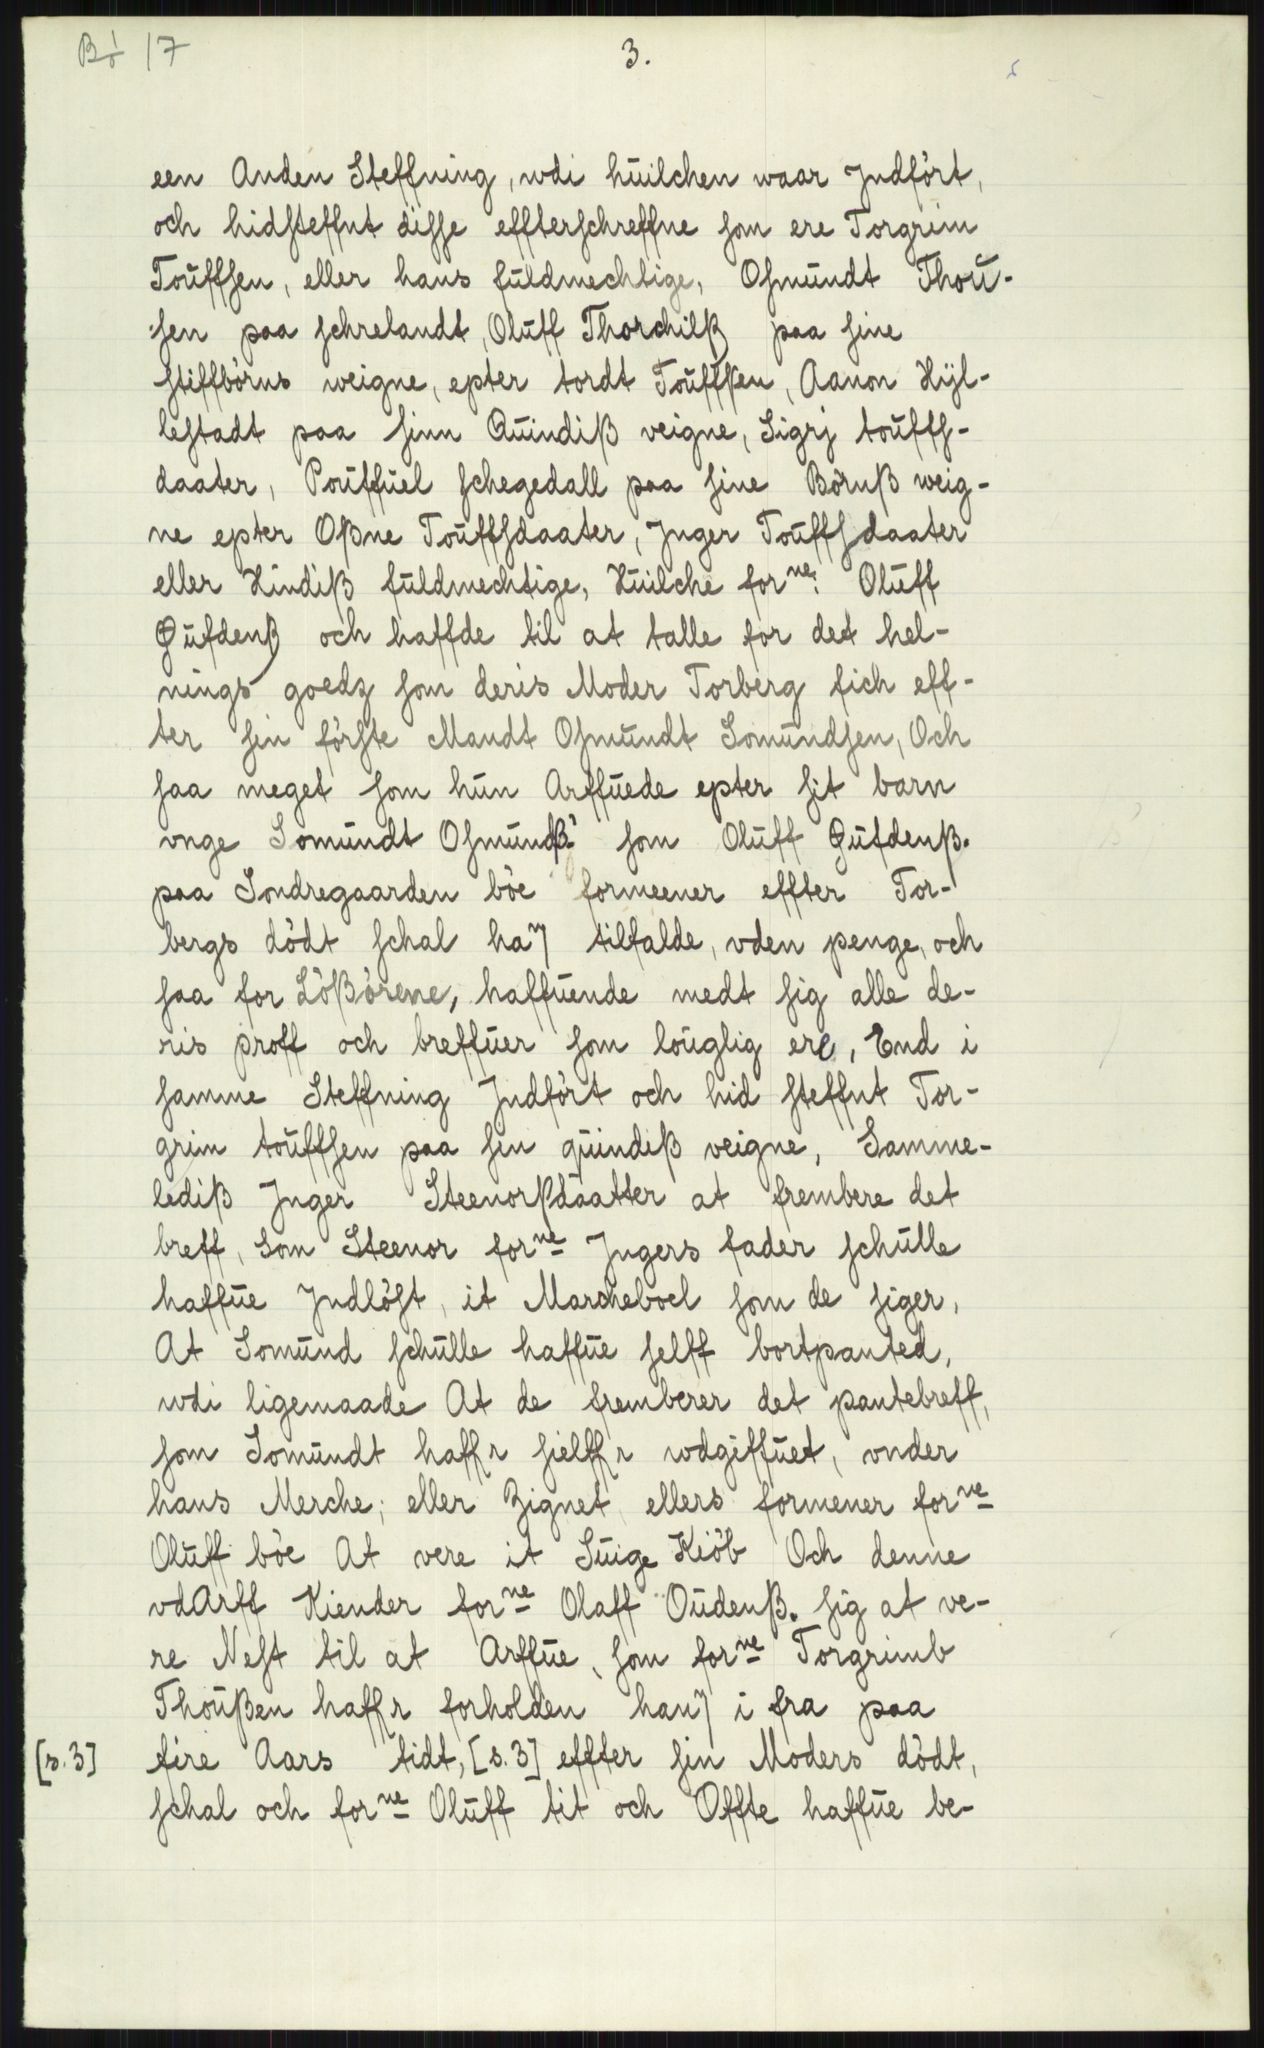 Bø 17
3.
een Anden Steffning, wdi huilchen waar Jndført,
och hidsteffnt disse effterschreffne som ere Torgrim
Touffsen, eller hans fuldmechtige, Osmundt Thou-
sen paa schrelandt, Oluff Thorchilß paa sine
stiffbørns weigne, epter tordt Touffsen, Aanon Hyl-
lestadt paa sinn Quindiß veigne, Sigrj touffs-
daater, Pouffuel schegedall paa sine Børnß weig-
ne epter Oßne Touffsdaater, Jnger Touffsdaater
eller Hindiß fuldmechtige, Huilche forne: Oluff
Gufdenß och haffde til at talle for det hel-
nings goedz som deris Moder Torberg fich eff-
ter sin første Mandt Osmundt Somundsen, Och
saa meget som hun Arffuede epter sit barn
vnge Somundt Osmundß som Oluff Gufdenß.
paa Sondregaarden bøe formeener effter Tor-
bergs dødt schal haŋ tilfalde, vden penge, och
saa for Løßørene, haffuende medt sig alle de-
ris proff och breffuer som louglig ere, End i
samme Steffning Jndført och hid steffnt Tor-
grim touffsen paa sin quindiß veigne, Samme-
lediß Jnger Steenorßdaatter at frembere det
breff, som Steenor forne Jngers fader schulle
haffue Jndløst, it Marcheboel som de siger,
At Somund schulle haffue selff bortpanted,
wdi ligemaade At de fremberer det pantebreff,
som Somundt haffr sielffr wdgiffuet, vnder
hans Merche, eller Zignet ellers formener forne
Oluff bøe At vere it Suige Kiøb Och denne
vdArff Kiender forne Olaff Oudenß. sig at ve-
re Nest til at Arffue, som forne Torgrimb
Thoußen haffr forholden hanŋ i fra paa
[s. 3] fire Aars tidt, [s. 3] effter sin Moders dødt,
schal och forne Oluff tit och Offte haffue be-